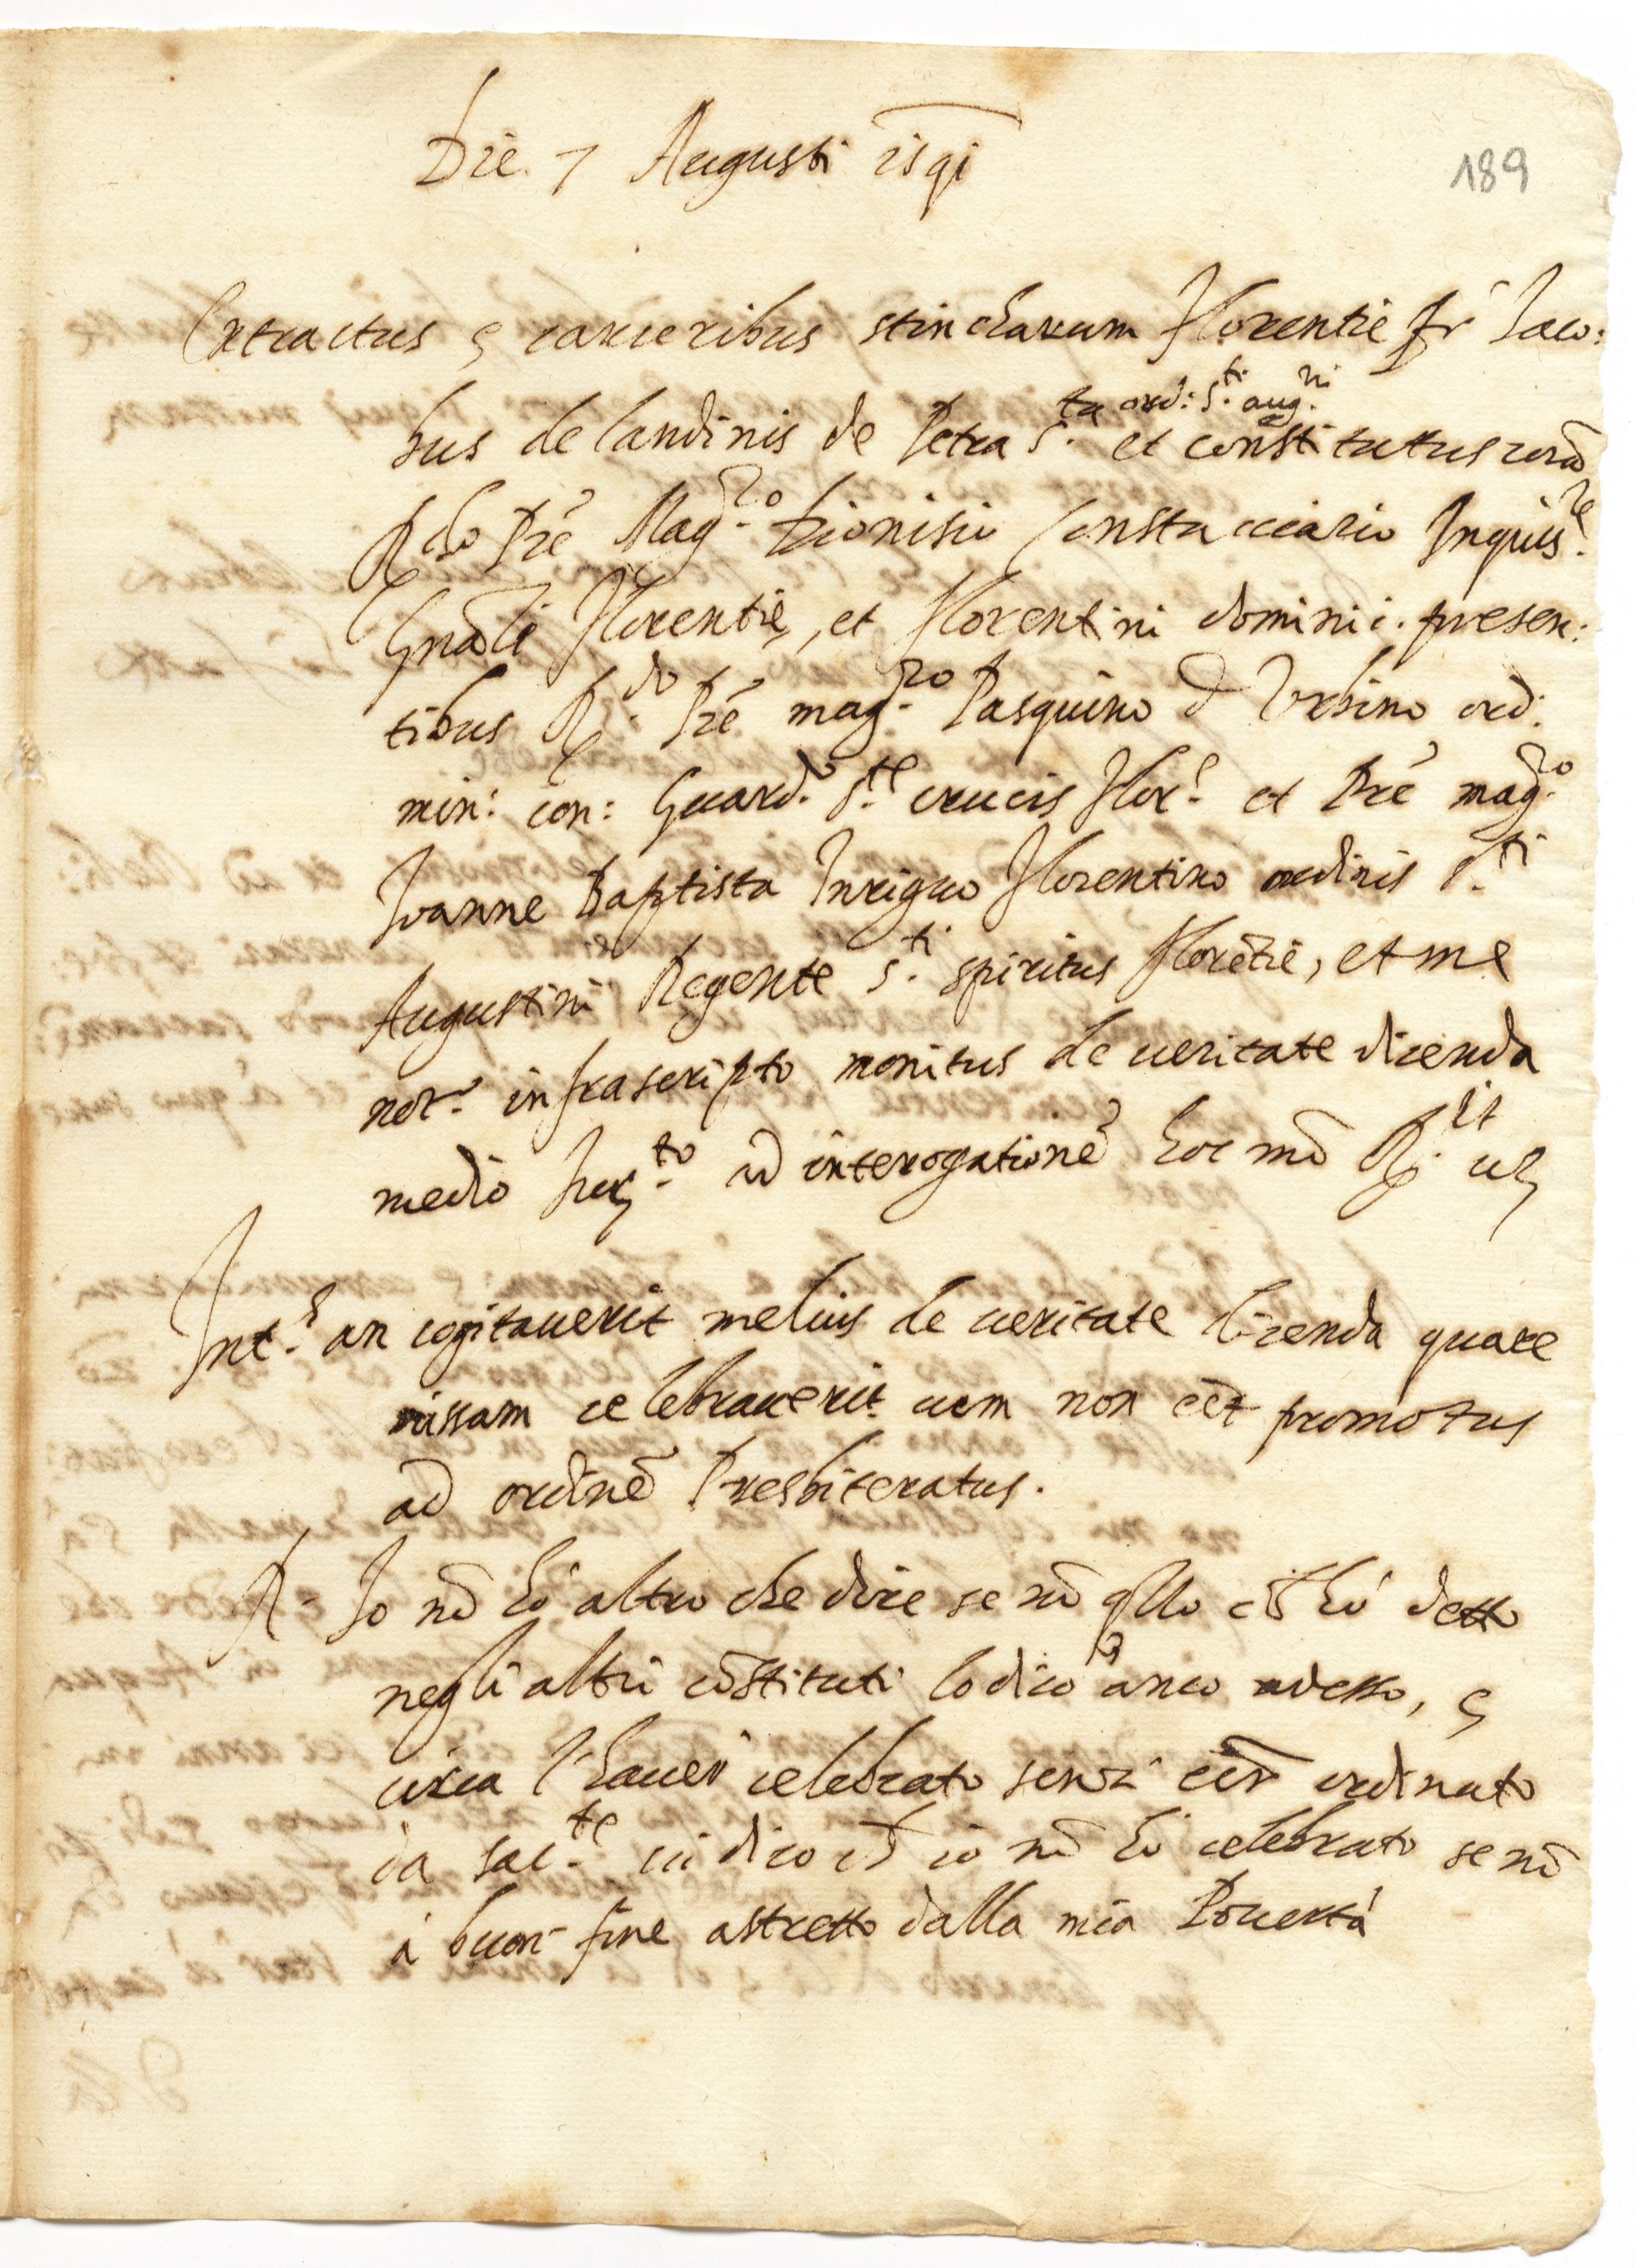 Die. 7 Augusti isqi
189
Extractus ę carceribus stincharum Florentie fr Iaco:
bus de landinis de Petra S.ta ord: S.ti aug.ni et constitutus corā
R.do Pre Mag.ro Dionisio Constacciario Inquis.re
Gnāli Florentię, et florentini dominii. presen:
tibus R.do Pre mag.ro Pasquino d Vrbino ord:
min: con: Guard. S.te crucis flor. et Pre mag.ro
Ioanne Baptista Inrigo Florentino ordinis S.ti
Augustini Regente S.ti spiritus florētie, et me
not. infrascripto monitus de ueritate dicenda
medio Iur.to ad interrogationē hoc mō R.it uz
Int. an cogitauerit melius de ueritate dicenda quare
missam celebrauerit cum non eēt promotus
ad ordinē Presbiteratus.
R. Io nō hò altro che dire se nō qllo ch hò detto
negli altri cōstituti lo dico anco adesso, ę
circa l'hauer celebrato senza eēr ordinato
da Sac.te ui dico ch io nō hò celebrato se nō
à buon fine astretto dalla mia Pouertà